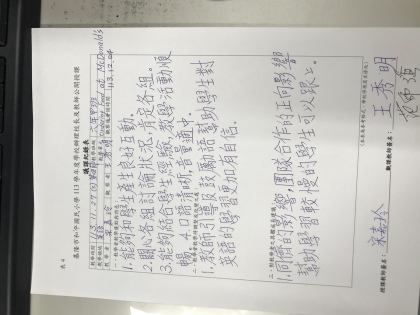 表4
基隆市和平國民小學 113 學年度學校辦理校長及教師公開授課
議課紀錄表
教學時間 113.11.27(三)第四節 教學班級 六年甲班
教學領域 英語 教學單元 Ordering Food at McDonald's
教學者 宋嘉玲 觀察者 王秀明 觀察後會談時間 113.12.04
一、教學者教學優點與特色：
1.能夠和學生產生良好互動.
2.關心各組討論狀況,肯定各組.
3.能夠結合學生經驗,教學活動順
暢. 4.口語清晰,音量適中.
二、教學者教學待調整或改變之處
1.教師引導及鼓勵語幫助學生對
英語的學習更加有自信.
三、對教學者之具體成長建議：
1.同儕的影響,團隊合作的正向影響
幫助學習較慢的學生可以跟上.
授課教師簽名： 宋嘉玲 觀課教師簽名： 王秀明